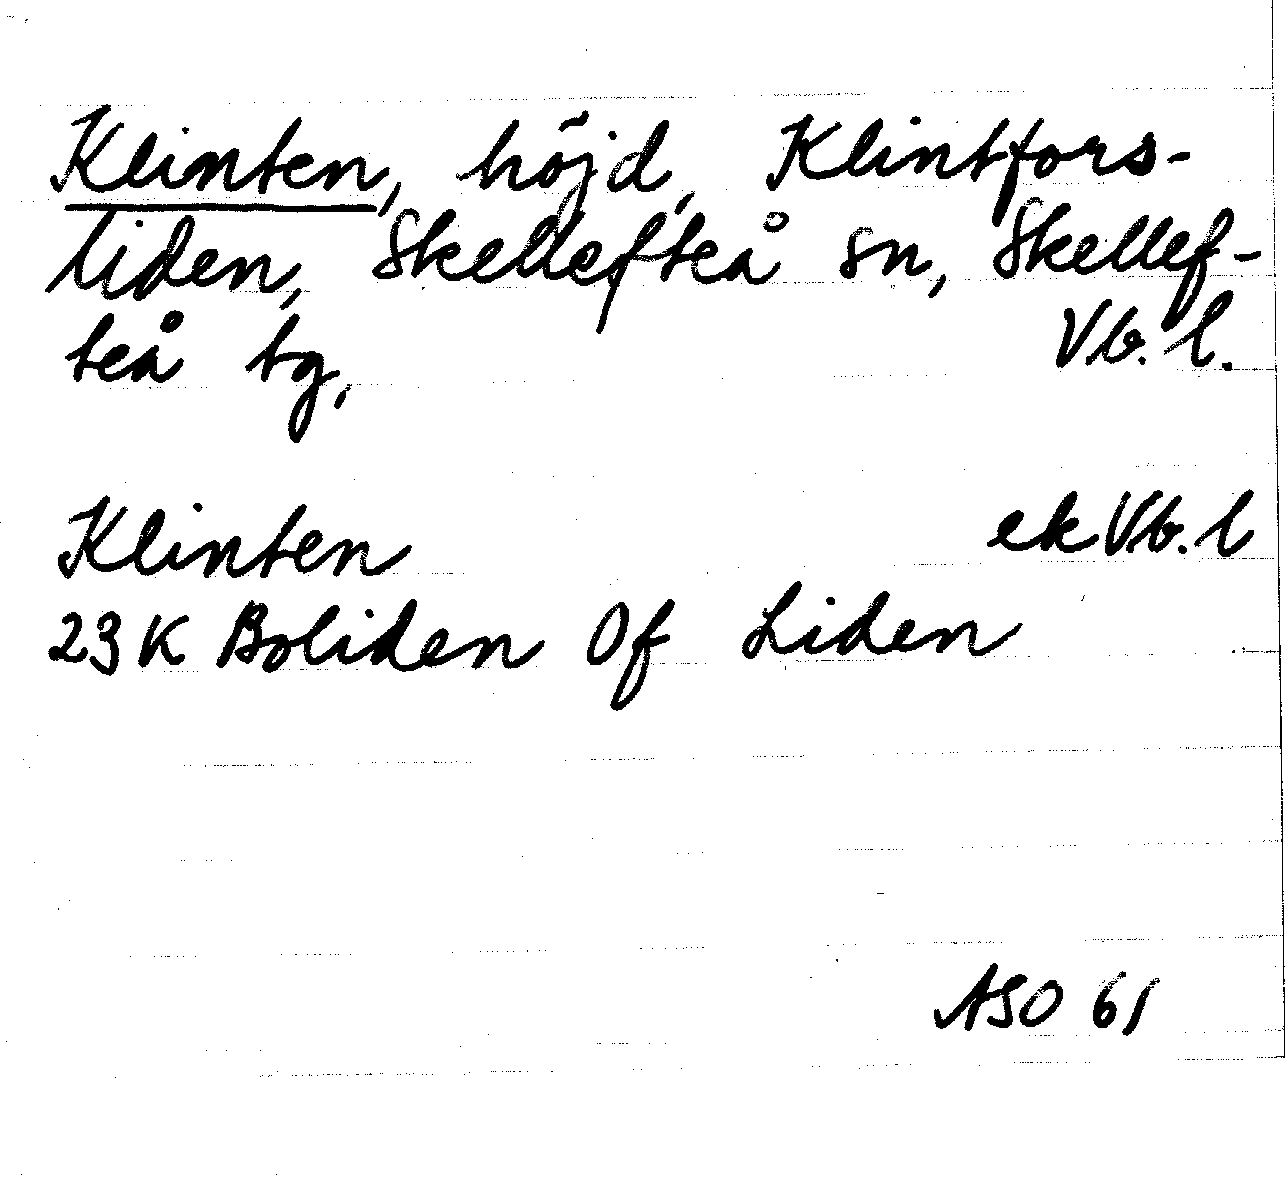 Klinten, höjd, Klintfors-
liden, Skellefteå sn, Skellef-
teå tg, Vb. l.
Klinten ek Vb. l
23 K Boliden Of Liden
ASO 61